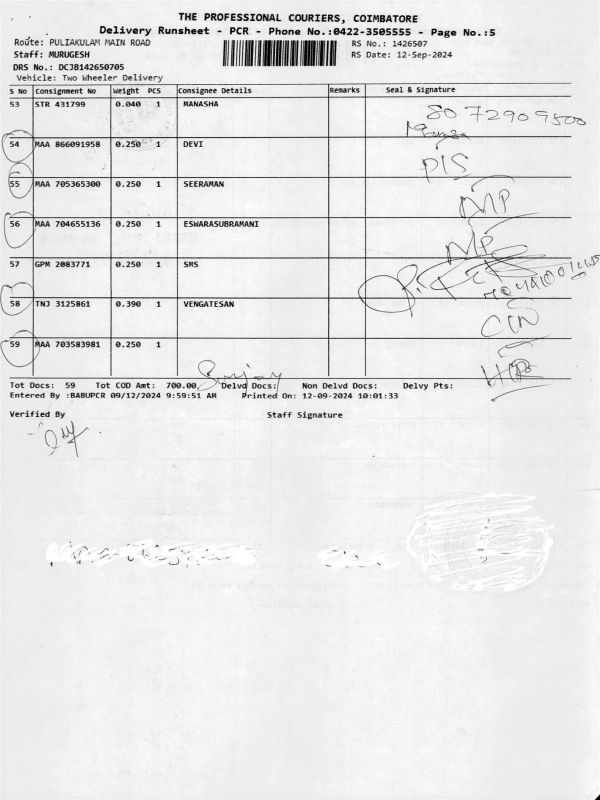 THE PROFESSIONAL COURIERS, COIMBATORE
Delivery Runsheet - PCR - Phone No.:0422-3505555 - Page No.:5
Route: PULIAKULAM MAIN ROAD
RS No.: 1426507
Staff: MURUGESH
RS Date: 12-Sep-2024
DRS No.: DCJB142650705
Vehicle: Two Wheeler Delivery
S No Consignment No Weight PCS Consignee Details Remarks Seal & Signature
53 STR 431799 0.040 1 MANASHA
54 MAA 866091958 0.250 1 DEVI
DIS
55 MAA 705365300 0.250 1 SEERAMAN
NP
56 MAA 704655136 0.250 1 ESWARASUBRAMANI
NP
57 GPM 2083771 0.250 1 SMS
58 TNJ 3125861 0.390 1 VENGATESAN
59 MAA 703583981 0.250 1
Sanjay
Tot Docs: 59 Tot COD Amt: 700.00 Delvd Docs: Non Delvd Docs: Delvy Pts:
Entered By :BABUPCR 09/12/2024 9:59:51 AM Printed On: 12-09-2024 10:01:33
Verified By Staff Signature